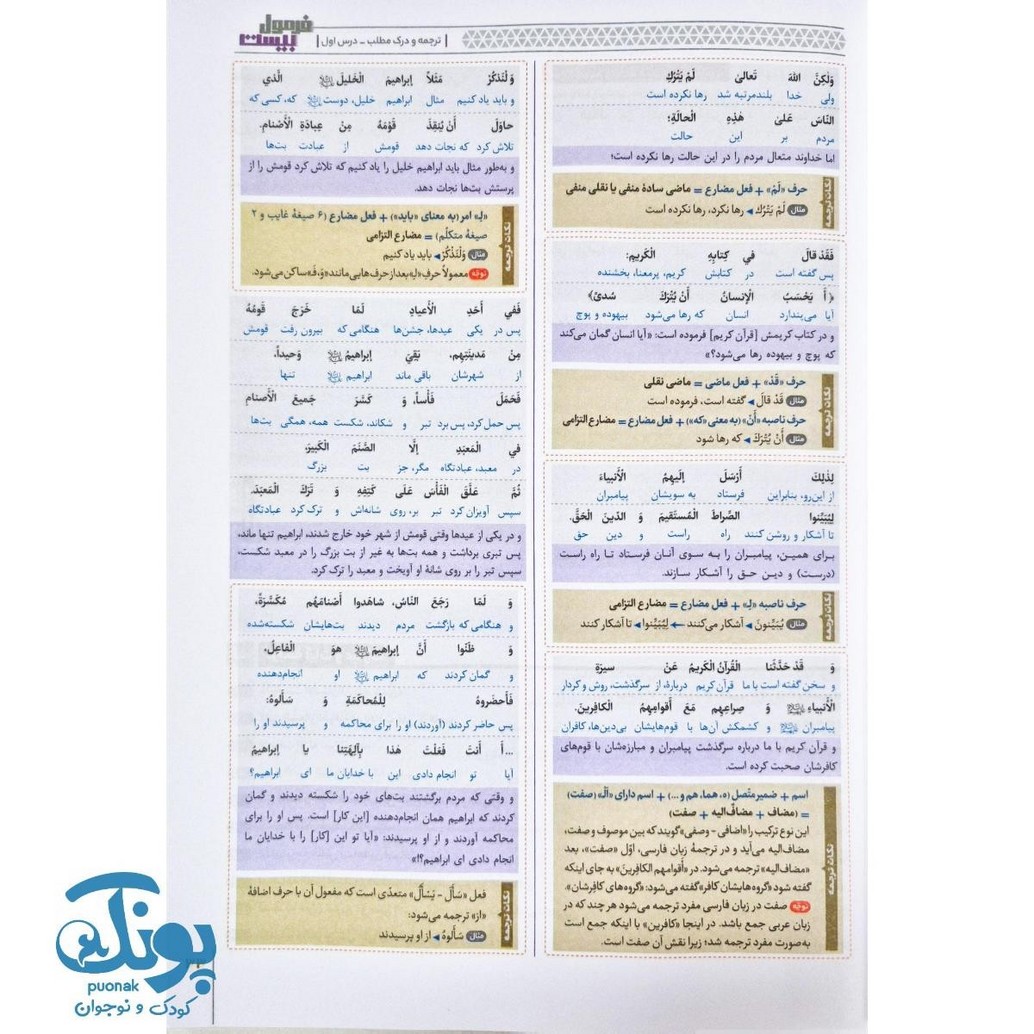 فرمول بیست
| ترجمه و درک مطلب ـ درس اول |
وَلٰکِنَّ اللّٰهَ تَعالیٰ لَمْ یَتْرُكِ
ولی خدا بلندمرتبه شد رها نکرده است
النّاسَ عَلیٰ هٰذِهِ الْحالَةِ؛
مردم بر این حالت
اما خداوند متعال مردم را در این حالت رها نکرده است؛
نکات ترجمه
حرف «لَمْ» + فعل مضارع = ماضی سادهٔ منفی یا نقلی منفی
مثال لَمْ یَتْرُك ◄ رها نکرد، رها نکرده است
فَقَدْ قالَ في کِتابِهِ الْکَریمِ:
پس گفته است در کتابش کریم، پرمعنا، بخشنده
﴿أَ یَحْسَبُ الْإنسانُ أَنْ یُتْرَكَ سُدیً﴾
آیا می‌پندارد انسان که رها می‌شود بیهوده و پوچ
و در کتاب کریمش [قرآن کریم] فرموده است: «آیا انسان گمان می‌کند
که پوچ و بیهوده رها می‌شود؟»
نکات ترجمه
حرف «قَدْ» + فعل ماضی = ماضی نقلی
مثال قَدْ قالَ ◄ گفته است، فرموده است
حرف ناصبه «أَنْ» (به معنی «که») + فعل مضارع = مضارع التزامی
مثال أَنْ یُتْرَكَ ◄ که رها شود
لِذٰلِكَ أَرْسَلَ إلَیهِمُ الْأنبیاءَ
از این‌رو، بنابراین فرستاد به سویشان پیامبران
لِیُبَیِّنوا الصِّراطَ الْمُسْتَقیمَ وَ الدّینَ الْحَقَّ.
تا آشکار و روشن کنند راه راست و دین حق
برای همین، پیامبران را به سوی آنان فرستاد تا راه راست
(درست) و دین حق را آشکار سازند.
نکات ترجمه
حرف ناصبه «لِـ» + فعل مضارع = مضارع التزامی
مثال یُبَیِّنونَ ◄ آشکار می‌کنند ← لِیُبَیِّنوا ◄ تا آشکار کنند
وَ قَدْ حَدَّثَنا الْقُرآنُ الْکَریمُ عَنْ سیرَةِ
و سخن گفته است با ما قرآن کریم دربارهٔ، از سرگذشت، روش و کردار
الْأنبیاءِ وَ صِراعِهِم مَعَ أَقوامِهِمُ الْکافِرینَ.
پیامبران و کشمکش آن‌ها با قوم‌هایشان بی‌دین‌ها، کافران
و قرآن کریم با ما درباره سرگذشت پیامبران و مبارزه‌شان با قوم‌های
کافرشان صحبت کرده است.
نکات ترجمه
اسم + ضمیر متّصل (ه، هما، هم و ...) + اسم دارای «اَلْ» (صفت)
= (مضاف + مضافٌ‌الیه + صفت)
این نوع ترکیب را «اضافی - وصفی» گویند که بین موصوف و صفت،
مضاف‌الیه می‌آید و در ترجمهٔ زبان فارسی، اوّل «صفت»، بعد
«مضاف‌الیه» ترجمه می‌شود. در «أقوامهم الکافِرینَ» به جای اینکه
گفته شود «گروه‌هایشان کافر» گفته می‌شود: «گروه‌های کافرشان».
توجّه صفت در زبان فارسی مفرد ترجمه می‌شود هر چند که در
زبان عربی جمع باشد. در اینجا «کافرین» با اینکه جمع است
به‌صورت مفرد ترجمه شد؛ زیرا نقش آن صفت است.
وَ لْنَذْکُرْ مَثَلاً إبراهیمَ الْخَلیلَ الَّذي
و باید یاد کنیم مثال ابراهیم خلیل، دوست که، کسی که
حاوَلَ أَنْ یُنقِذَ قَوْمَهُ مِنْ عِبادَةِ الْأَصْنامِ.
تلاش کرد که نجات دهد قومش از عبادت بت‌ها
و به‌طور مثال باید ابراهیم خلیل را یاد کنیم که تلاش کرد قومش را از
پرستش بت‌ها نجات دهد.
نکات ترجمه
«لِـ» امر (به معنای «باید») + فعل مضارع (۶ صیغهٔ غایب و ۲
صیغهٔ متکلّم) = مضارع التزامی
مثال وَلْنَذْکُرْ ◄ باید یاد کنیم
توجّه معمولاً حرفِ «لِـ» بعد از حرف‌هایی مانند «وَ، فَـ» ساکن می‌شود.
فَفي أَحَدِ الْأعیادِ لَمّا خَرَجَ قَومُهُ
پس در یکی عیدها، جشن‌ها هنگامی که بیرون رفت قومش
مِنْ مَدینَتِهِم، بَقِيَ إبراهیمُ وَحیداً.
از شهرشان باقی ماند ابراهیم تنها
فَحَمَلَ فَأْساً، وَ کَسَّرَ جَمیعَ الْأَصنامِ
پس حمل کرد، پس برد تبر و شکاند، شکست همه، همگی بت‌ها
في الْمَعبَدِ إلَّا الصَّنَمَ الْکَبیرَ،
در معبد، عبادتگاه مگر، جز بت بزرگ
ثُمَّ عَلَّقَ الْفَأْسَ عَلَی کَتِفِهِ وَ تَرَكَ الْمَعبَدَ.
سپس آویزان کرد تبر بر، روی شانه‌اش و ترک کرد عبادتگاه
و در یکی از عیدها وقتی قومش از شهر خود خارج شدند، ابراهیم تنها ماند،
پس تبری برداشت و همه بت‌ها به غیر از بت بزرگ را در معبد شکست،
سپس تبر را بر روی شانهٔ او آویخت و معبد را ترک کرد.
وَ لَمّا رَجَعَ النّاسُ، شاهَدوا أَصْنامَهُم مُکَسَّرَةً،
و هنگامی که بازگشت مردم دیدند بت‌هایشان شکسته‌شده
وَ ظَنّوا أَنَّ إبراهیمَ هوَ الْفاعِلُ،
و گمان کردند که ابراهیم او انجام‌دهنده
فَأَحضَروهُ لِلْمُحاکَمَةِ وَ سَأَلوهُ:
پس حاضر کردند (آوردند) او را برای محاکمه و پرسیدند او را
... أَ أَنتَ فَعَلْتَ هٰذا بِآلِهَتِنا یا إبراهیمُ
آیا تو انجام دادی این با خدایان ما ای ابراهیم؟
و وقتی که مردم برگشتند بت‌های خود را شکسته دیدند و گمان
کردند که ابراهیم همان انجام‌دهنده [این کار] است. پس او را برای
محاکمه آوردند و از او پرسیدند: «آیا تو این [کار] را با خدایان ما
انجام دادی ای ابراهیم؟!»
نکات ترجمه
فعل «سَأَلَ - یَسْأَلُ» متعدّی است که مفعول آن با حرف اضافهٔ
«از» ترجمه می‌شود:
مثال سَأَلوهُ ◄ از او پرسیدند
پونک
puonak
کودک و نوجوان